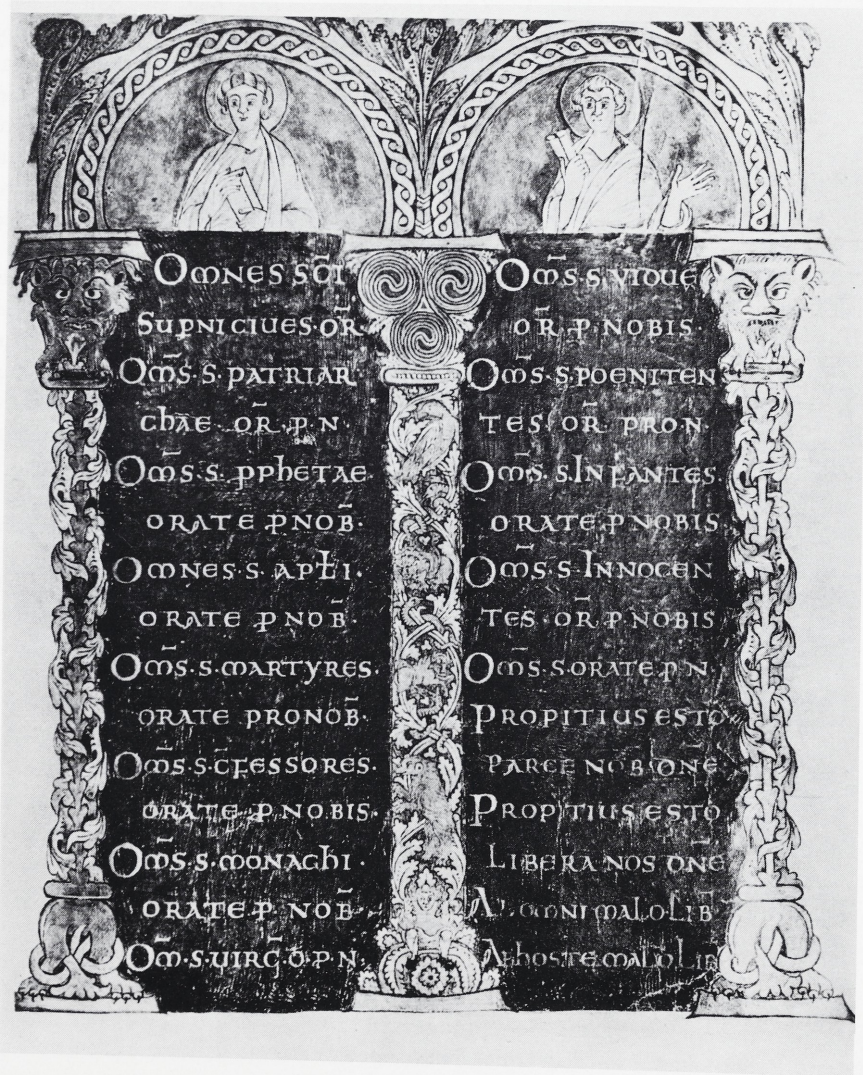 OMNES SC̄I
SUPNI CIUES·OR̄
OM̄S·S·PATRIAR
ChAE OR̄·P·N·
OM̄S·S·PPhETAE
ORATE PNOB̄·
OMNES·S·APŁI·
ORATE PNOB̄·
OM̄S·S·MARTYRES·
ORATE PRONOB̄·
OM̄S·S·CF̄ESSORES·
ORATE PNOBIS·
OM̄S·S·MONAChI·
ORATE·P·NOB̄·
OM̄·S·UIRḠ·O·P·N·
OM̄S·S·VIDUE
OR̄·P·NOBIS·
OM̄S·S·POENITEN
TES·OR̄·PRO·N·
OM̄S·S·INFANTES
ORATE·PNOBIS
OM̄S·S·INNOCEN
TES·OR̄·PNOBIS
OM̄S·S·ORATE·P·N·
PROPITIUS ESTO
PARCE NOB̄ DN̄E
PROPITIUS ESTO
LIBERA NOS DN̄E
AB OMNI MALO LIB̄
AB hOSTE MALO LIB̄